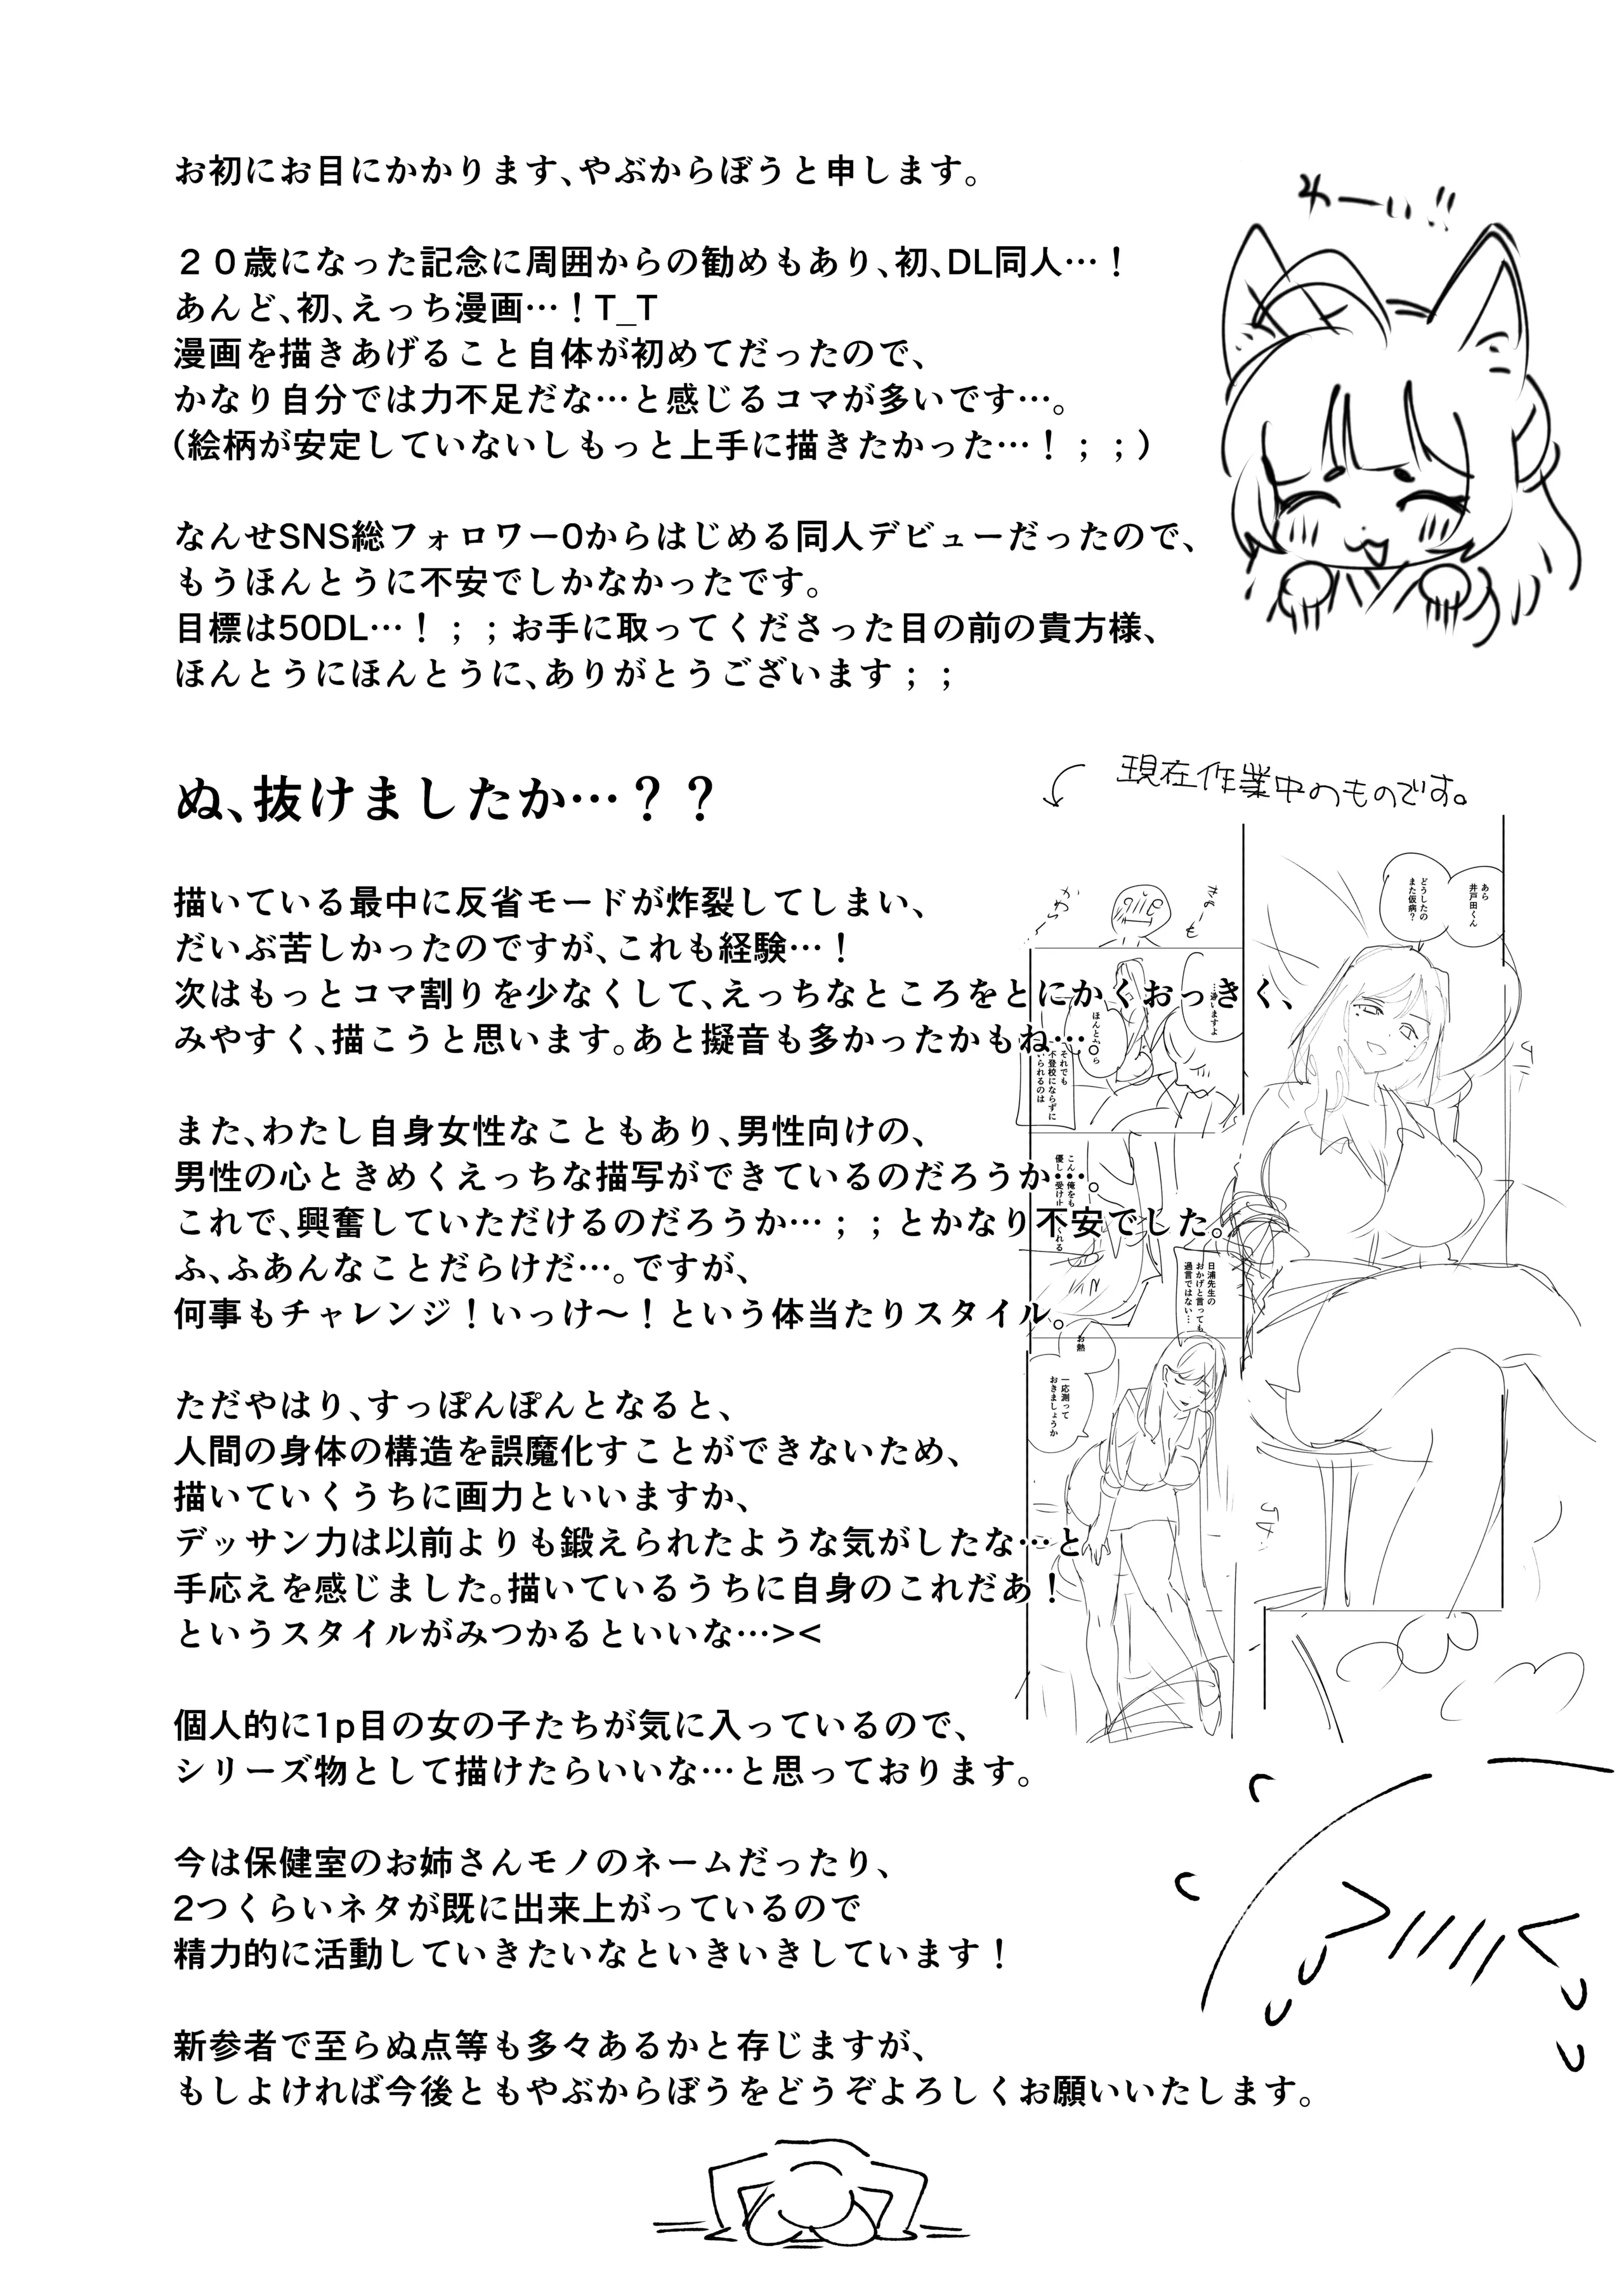 お初にお目にかかります、やぶからぼうと申します。
わーい!!
２０歳になった記念に周囲からの勧めもあり、初、DL同人…！
あんど、初、えっち漫画…！T_T
漫画を描きあげること自体が初めてだったので、
かなり自分では力不足だな…と感じるコマが多いです…。
(絵柄が安定していないしもっと上手に描きたかった…！；；)
なんせSNS総フォロワー0からはじめる同人デビューだったので、
もうほんとうに不安でしかなかったです。
目標は50DL…！；；お手に取ってくださった目の前の貴方様、
ほんとうにほんとうに、ありがとうございます；；
ぬ、抜けましたか…？？
描いている最中に反省モードが炸裂してしまい、
だいぶ苦しかったのですが、これも経験…！
次はもっとコマ割りを少なくして、えっちなところをとにかくおっきく、
みやすく、描こうと思います。あと擬音も多かったかもね…。
また、わたし自身女性なこともあり、男性向けの、
男性の心ときめくえっちな描写ができているのだろうか…。
これで、興奮していただけるのだろうか…；；とかなり不安でした。
ふ、ふあんなことだらけだ…。ですが、
何事もチャレンジ！いっけ〜！という体当たりスタイル。
ただやはり、すっぽんぽんとなると、
人間の身体の構造を誤魔化すことができないため、
描いていくうちに画力といいますか、
デッサン力は以前よりも鍛えられたような気がしたな…と
手応えを感じました。描いているうちに自身のこれだあ！
というスタイルがみつかるといいな…><
個人的に1p目の女の子たちが気に入っているので、
シリーズ物として描けたらいいな…と思っております。
今は保健室のお姉さんモノのネームだったり、
2つくらいネタが既に出来上がっているので
精力的に活動していきたいなといきいきしています！
新参者で至らぬ点等も多々あるかと存じますが、
もしよければ今後ともやぶからぼうをどうぞよろしくお願いいたします。
現在作業中のものです。
あら
井戸田くん
どうしたの
また仮病？
それでも
不登校にならずに
いられるのは
日浦先生の
おかげと言っても
過言ではない…
お熱
一応測って
おきましょうか